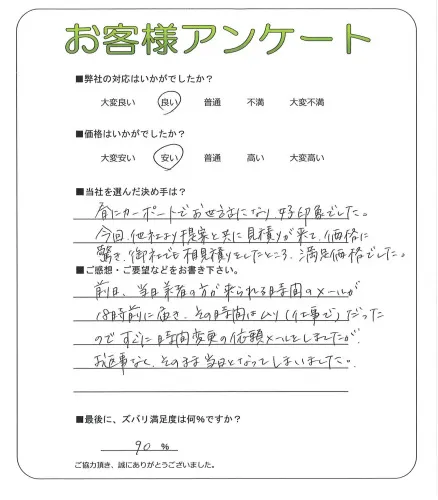 お客様アンケート
■弊社の対応はいかがでしたか？
大変良い 良い 普通 不満 大変不満
■価格はいかがでしたか？
大変安い 安い 普通 高い 大変高い
■当社を選んだ決め手は？
前にカーポートでお世話になり、好印象でした。
今回、他社より提案と共に見積りが来て、価格に
驚き、御社でも相見積りをしたところ、満足価格でした。
■ご感想・ご要望などをお書き下さい。
前日、当日業者の方が来られる時間のメールが
18時前に届き、その時間はムリ(仕事で)だった
のですぐに時間変更の依頼メールをしましたが、
お返事なく、そのまま当日となってしまいました。
■最後に、ズバリ満足度は何％ですか？
90 ％
ご協力頂き、誠にありがとうございました。